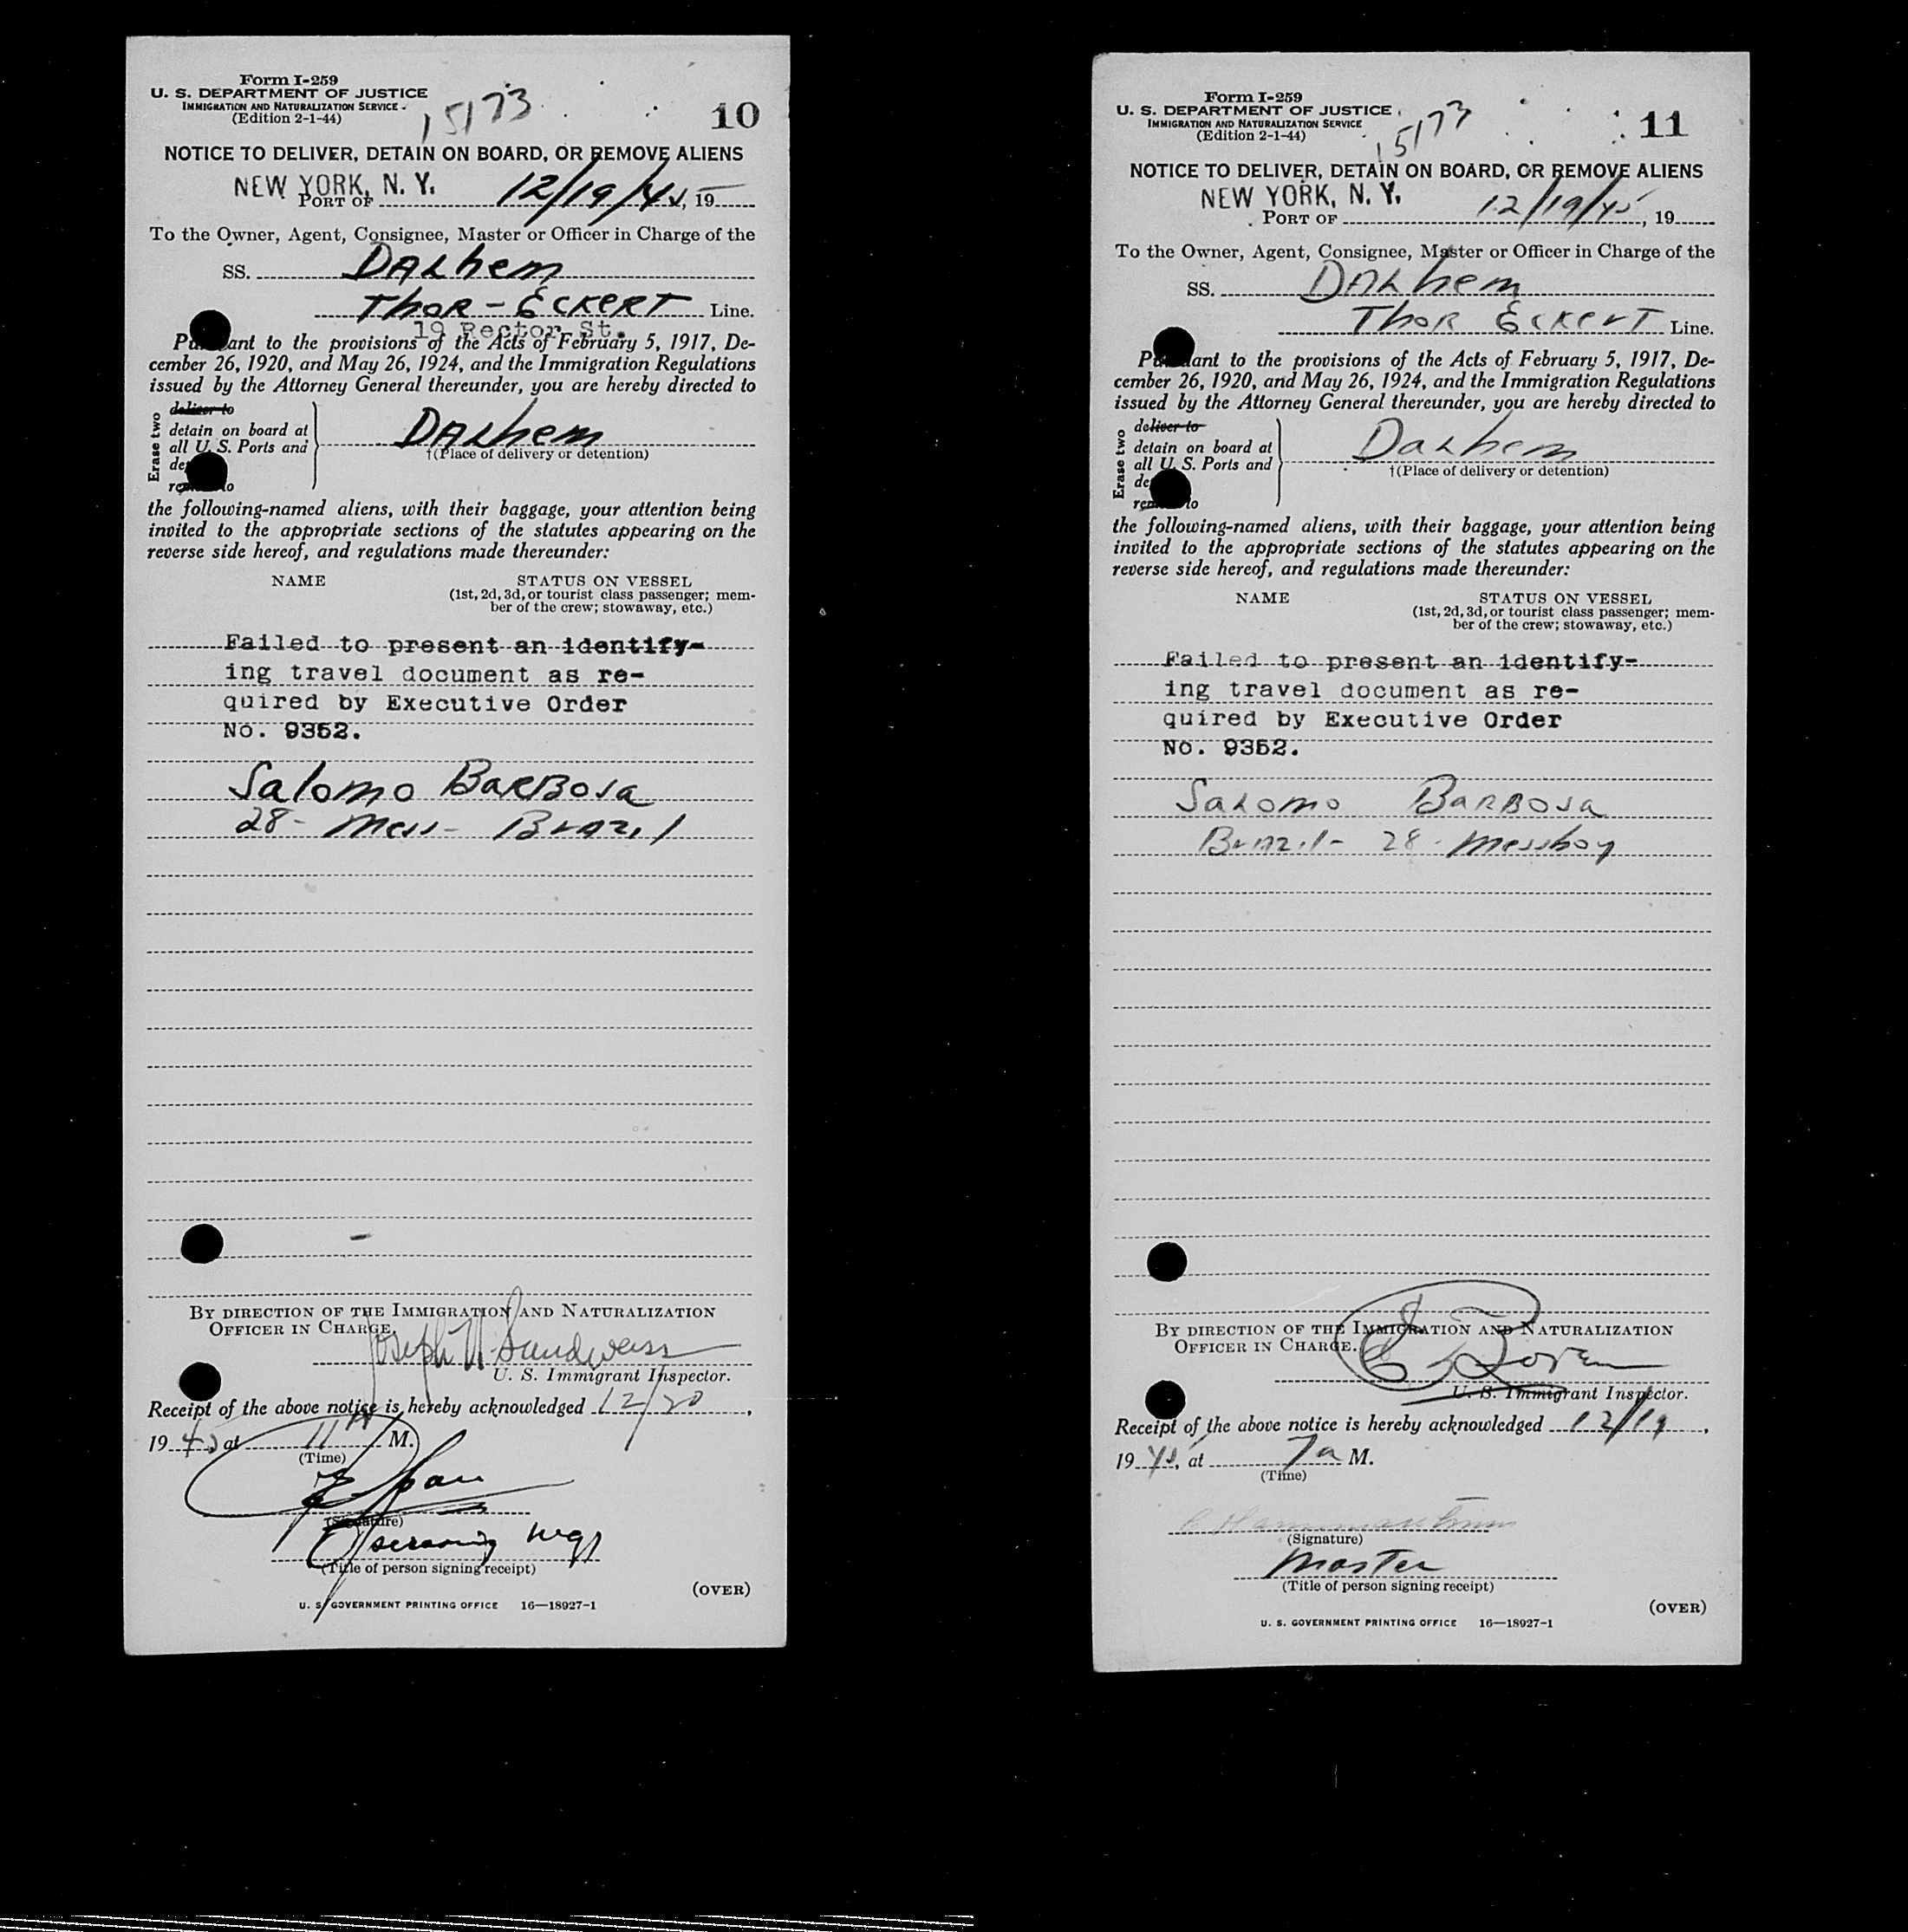 Form I-259
U. S. DEPARTMENT OF JUSTICE
IMMIGRATION AND NATURALIZATION SERVICE
(Edition 2-1-44)
15173
10
NOTICE TO DELIVER, DETAIN ON BOARD, OR REMOVE ALIENS
NEW YORK, N. Y.
PORT OF 12/19/45, 19
To the Owner, Agent, Consignee, Master or Officer in Charge of the
SS. DALhem
THOR - ECKERT Line.
19 Rector St.
Pursuant to the provisions of the Acts of February 5, 1917, De-
cember 26, 1920, and May 26, 1924, and the Immigration Regulations
issued by the Attorney General thereunder, you are hereby directed to
Erase two
deliver to
detain on board at
all U. S. Ports and
DALhem
†(Place of delivery or detention)
remove to
the following-named aliens, with their baggage, your attention being
invited to the appropriate sections of the statutes appearing on the
reverse side hereof, and regulations made thereunder:
NAME STATUS ON VESSEL
(1st, 2d, 3d, or tourist class passenger; mem-
ber of the crew; stowaway, etc.)
Failed to present an identify-
ing travel document as re-
quired by Executive Order
No. 9352.
Salomo BARBOSA
28 - Mess - BRAZIL
BY DIRECTION OF THE IMMIGRATION AND NATURALIZATION
OFFICER IN CHARGE.
Joseph Sandweiss
U. S. Immigrant Inspector.
Receipt of the above notice is hereby acknowledged 12/20,
1945 at 11 A M.
(Time)
(Signature)
(Title of person signing receipt)
(OVER)
U. S. GOVERNMENT PRINTING OFFICE 16—18927-1
Form I-259
U. S. DEPARTMENT OF JUSTICE
IMMIGRATION AND NATURALIZATION SERVICE
(Edition 2-1-44)
15173
11
NOTICE TO DELIVER, DETAIN ON BOARD, OR REMOVE ALIENS
NEW YORK, N. Y.
PORT OF 12/19/45, 19
To the Owner, Agent, Consignee, Master or Officer in Charge of the
SS. DALhem
THOR ECKERT Line.
Pursuant to the provisions of the Acts of February 5, 1917, De-
cember 26, 1920, and May 26, 1924, and the Immigration Regulations
issued by the Attorney General thereunder, you are hereby directed to
Erase two
deliver to
detain on board at
all U. S. Ports and
Dalhem
†(Place of delivery or detention)
remove to
the following-named aliens, with their baggage, your attention being
invited to the appropriate sections of the statutes appearing on the
reverse side hereof, and regulations made thereunder:
NAME STATUS ON VESSEL
(1st, 2d, 3d, or tourist class passenger; mem-
ber of the crew; stowaway, etc.)
Failed to present an identify-
ing travel document as re-
quired by Executive Order
No. 9352.
SALOMO BARBOSA
Brazil - 28 - Messboy
BY DIRECTION OF THE IMMIGRATION AND NATURALIZATION
OFFICER IN CHARGE.
U. S. Immigrant Inspector.
Receipt of the above notice is hereby acknowledged 12/19,
1945, at 7a M.
(Time)
(Signature)
Master
(Title of person signing receipt)
(OVER)
U. S. GOVERNMENT PRINTING OFFICE 16—18927-1